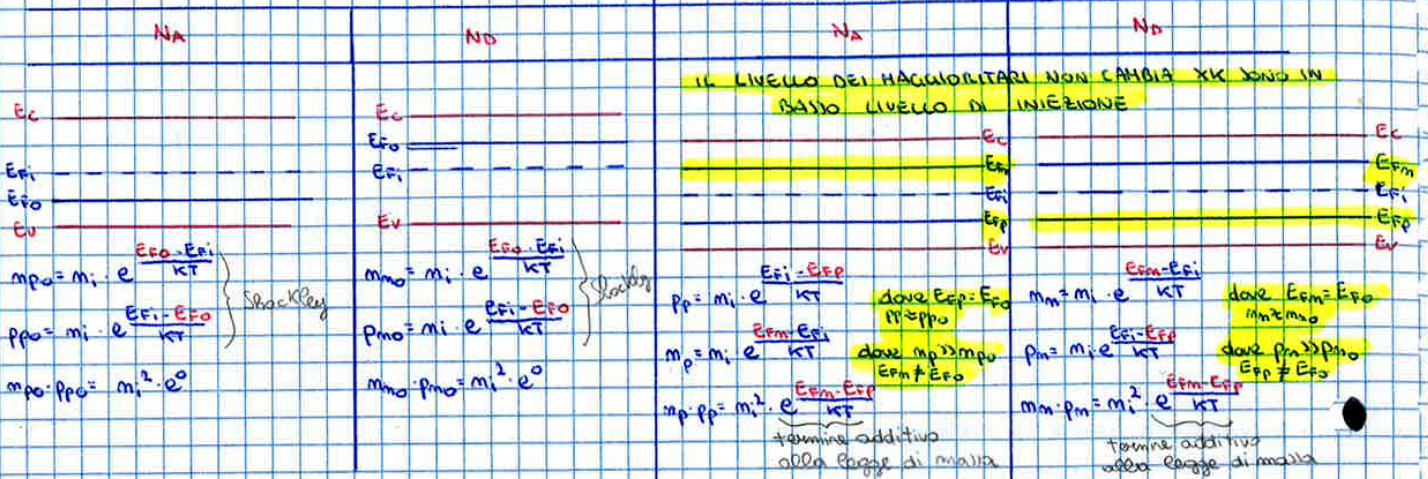 NA
Ec
EFi
EFo
Ev
npo = ni · e^((EFo - EFi)/KT)
ppo = ni · e^((EFi - EFo)/KT)
Shockley
npo · ppo = ni² · e⁰
ND
Ec
EFo
EFi
Ev
nno = ni · e^((EFo - EFi)/KT)
pno = ni · e^((EFi - EFo)/KT)
Shockley
nno · pno = ni² · e⁰
NA
ND
IL LIVELLO DEI MAGGIORITARI NON CAMBIA XK SONO IN
BASSO LIVELLO DI INIEZIONE
Ec
EFn
EFi
EFp
Ev
pp = ni · e^((EFi - EFp)/KT)
dove EFp = EFo
pp ≈ ppo
np = ni e^((EFn - EFi)/KT)
dove np >> npo
EFn ≠ EFo
np · pp = ni² · e^((EFn - EFp)/KT)
termine additivo
alla legge di massa
Ec
EFn
EFi
EFp
Ev
nn = ni · e^((EFn - EFi)/KT)
dove EFn = EFo
nn ≈ nno
pn = ni · e^((EFi - EFp)/KT)
dove pn >> pno
EFp ≠ EFo
nn · pn = ni² · e^((EFn - EFp)/KT)
termine additivo
alla legge di massa